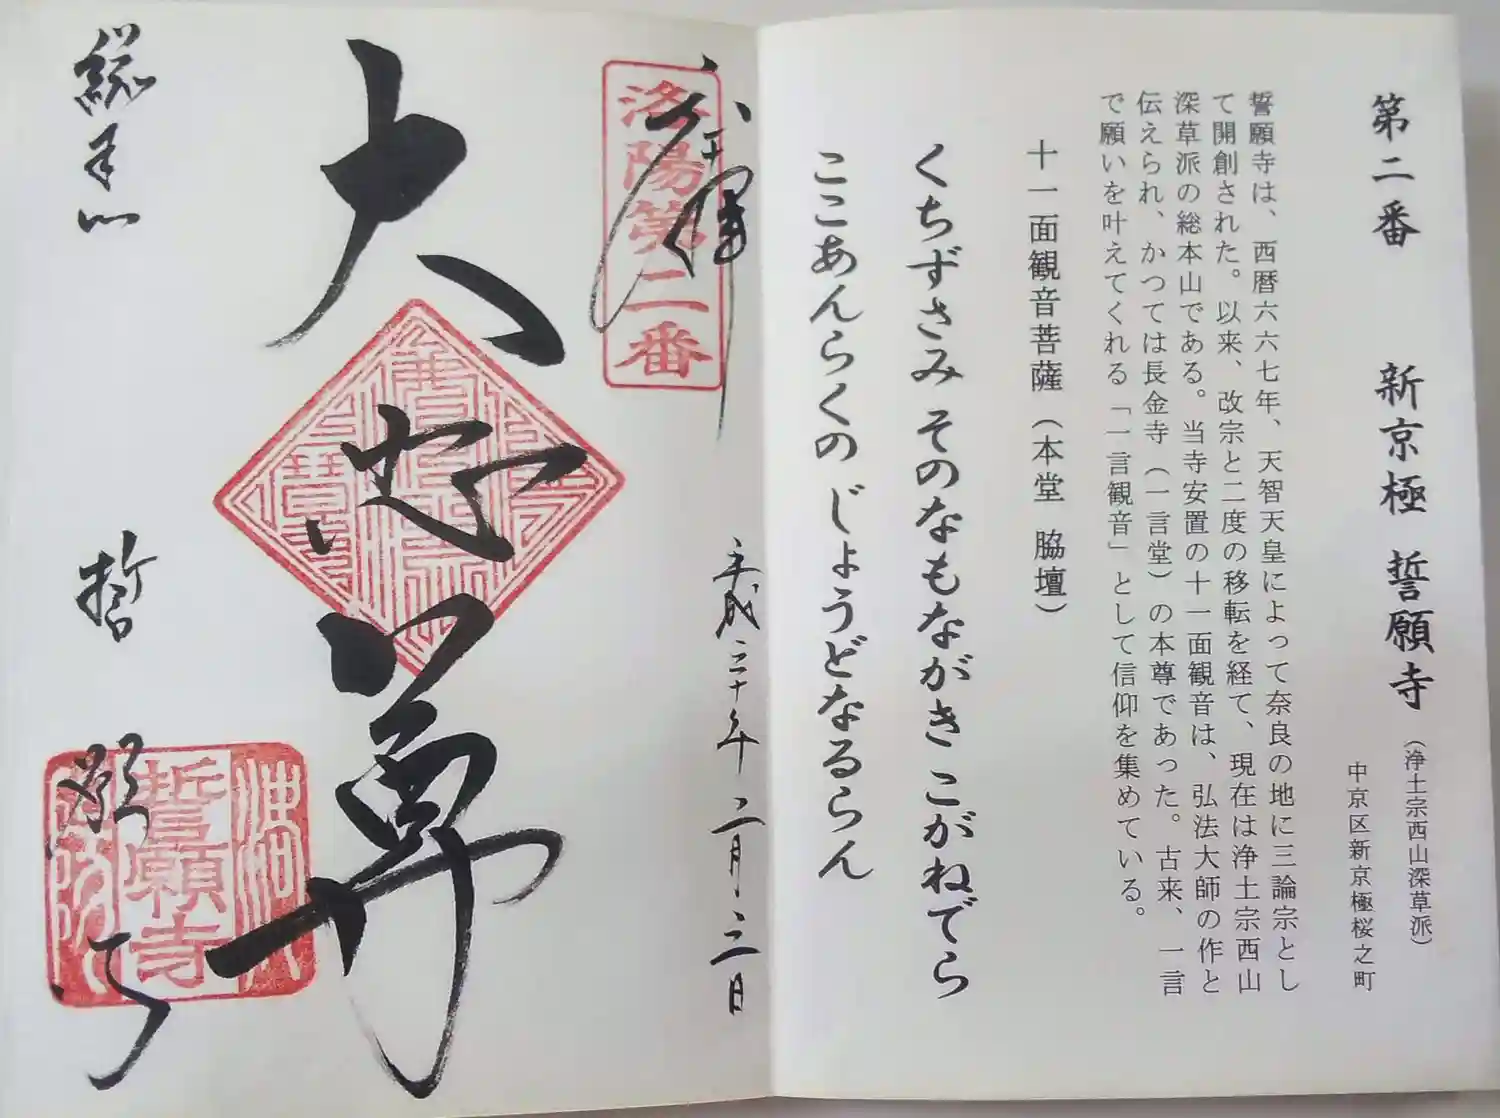 第二番 新京極 誓願寺
(浄土宗西山深草派)
中京区新京極桜之町
誓願寺は、西暦六六七年、天智天皇によって奈良の地に三論宗とし
て開創された。以来、改宗と二度の移転を経て、現在は浄土宗西山
深草派の総本山である。当寺安置の十一面観音は、弘法大師の作と
伝えられ、かつては長金寺(一言堂)の本尊であった。古来、一言
で願いを叶えてくれる「一言観音」として信仰を集めている。
十一面観音菩薩(本堂 脇壇)
くちずさみ そのなもながき こがねでら
ここあんらくの じょうどなるらん
奉拝
洛陽第二番
平成三十年二月三日
大悲尊
総本山
誓願寺
誓願寺